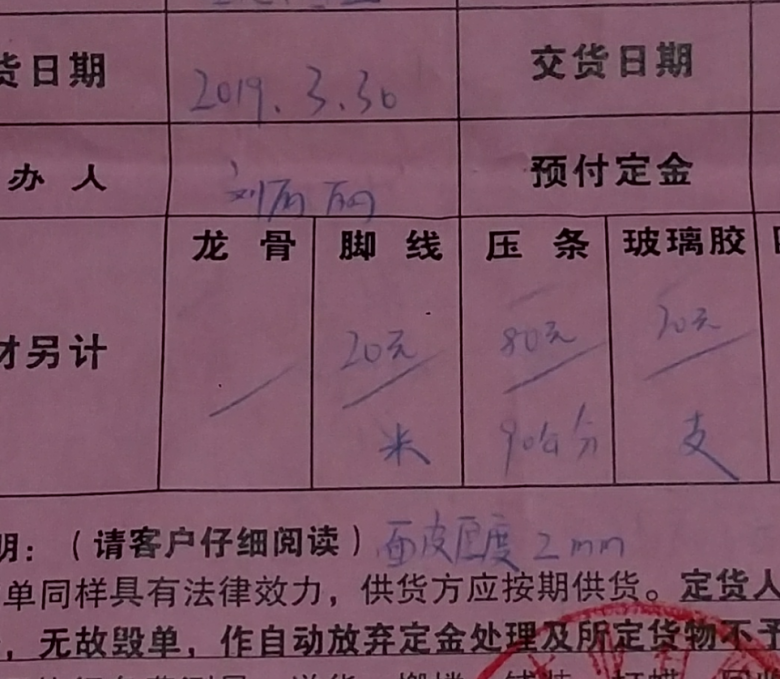 货日期 2019.3.30 交货日期
办人 刘丽丽 预付定金
龙骨 脚线 压条 玻璃胶
材另计 / 20元/米 80元/90公分 20元/支
明：（请客户仔细阅读）面皮厚度2mm
单同样具有法律效力，供货方应按期供货。定货人
，无故毁单，作自动放弃定金处理及所定货物不予